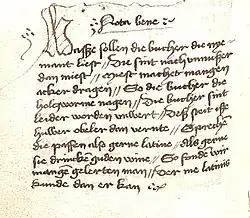 Nota bene
Waſze ſollen die bucher die nye-
mant leſt // Die ſint nach vnnutzer
dan mieſt // Mieſt machet mangen
acker dragen // So die bucher die
holczworme nagen // Die bucher ſint
leider worden vnwert //
huwer obeler dan vernte // Sprechen
die paffen alſo gerne latine // Alſz gerne
ſie drincke guden wine // So funde wir
mange gelerten man // Der me latinis
kunde dan er kan